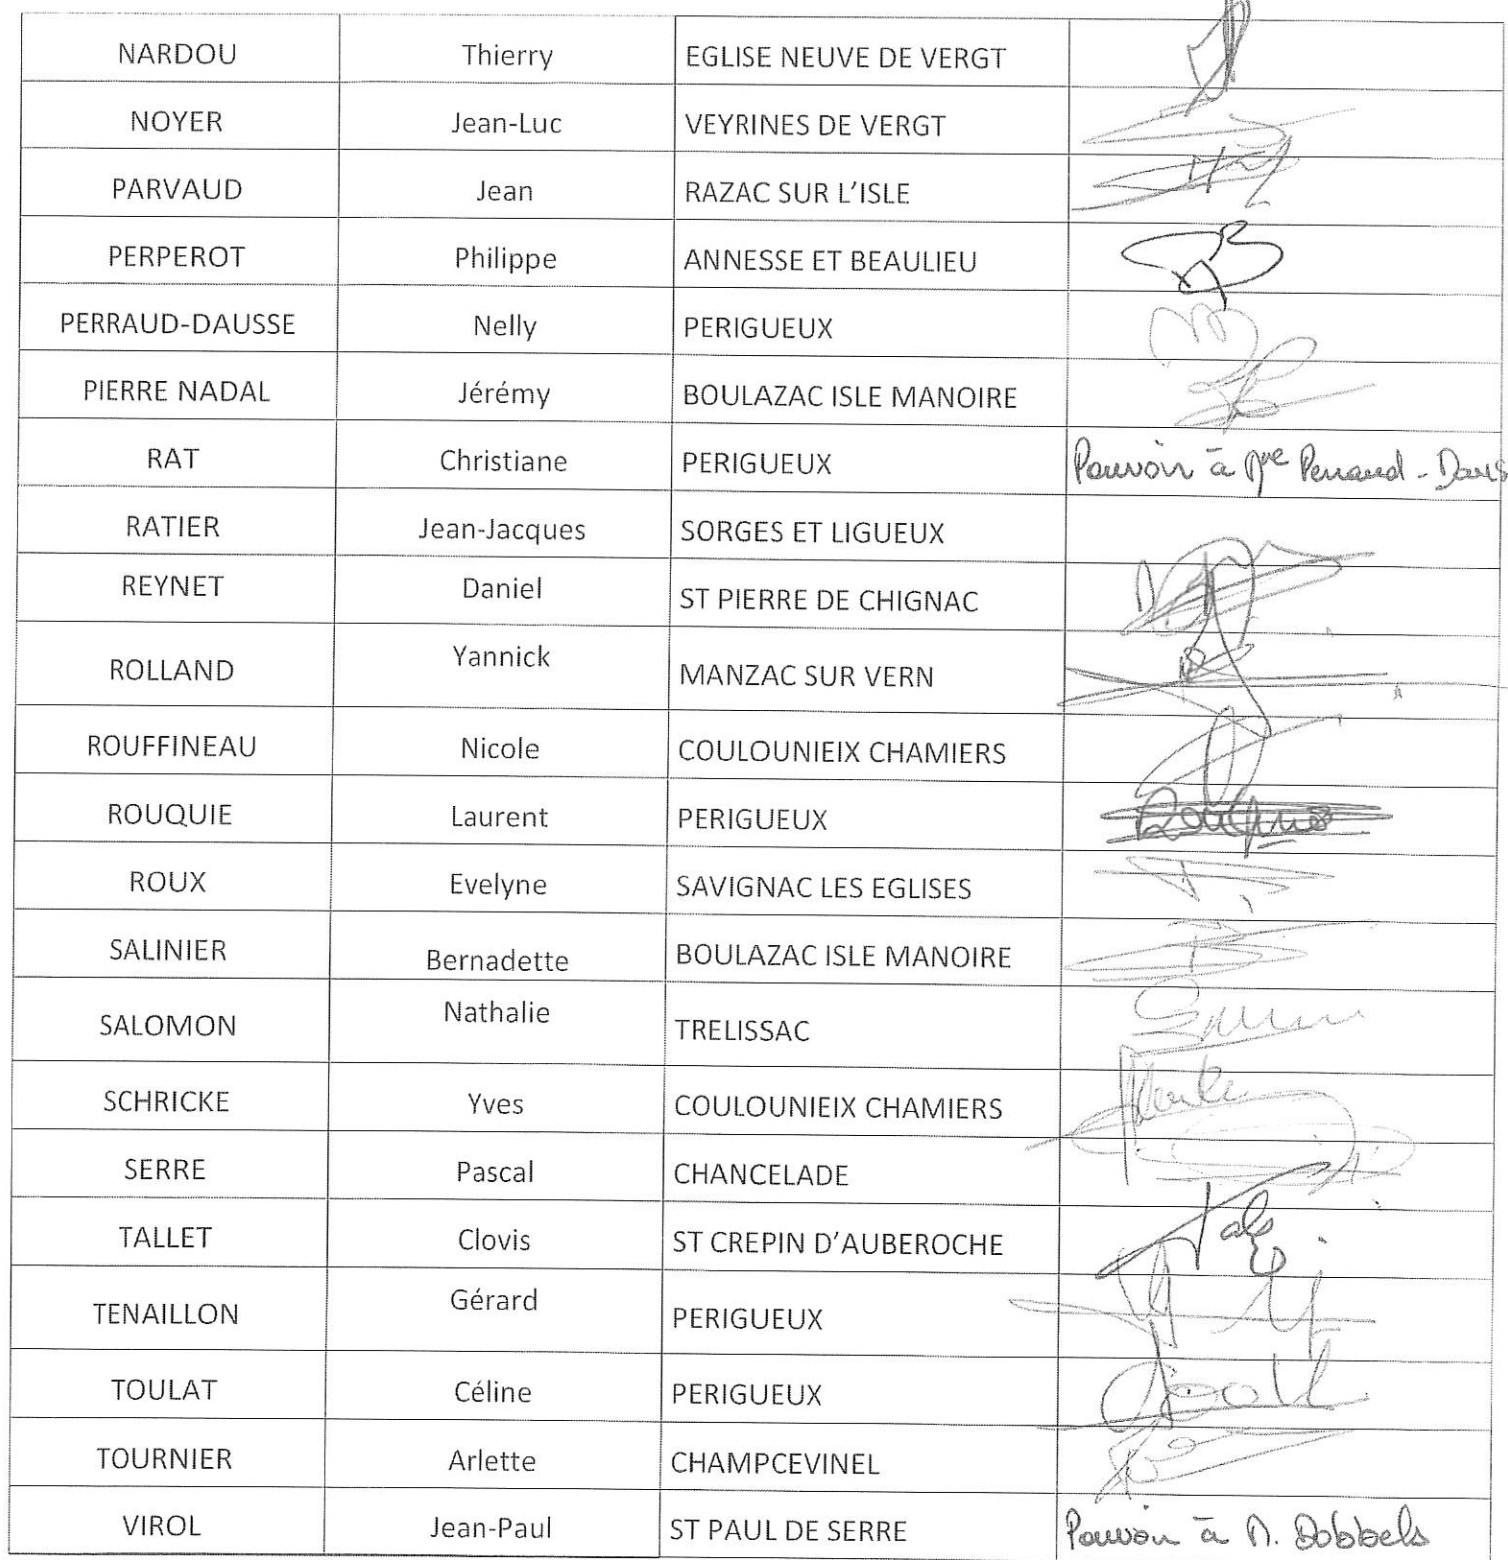 NARDOU Thierry EGLISE NEUVE DE VERGT
NOYER Jean-Luc VEYRINES DE VERGT
PARVAUD Jean RAZAC SUR L'ISLE
PERPEROT Philippe ANNESSE ET BEAULIEU
PERRAUD-DAUSSE Nelly PERIGUEUX
PIERRE NADAL Jérémy BOULAZAC ISLE MANOIRE
RAT Christiane PERIGUEUX Pouvoir à Mme Perraud-Daus
RATIER Jean-Jacques SORGES ET LIGUEUX
REYNET Daniel ST PIERRE DE CHIGNAC
ROLLAND Yannick MANZAC SUR VERN
ROUFFINEAU Nicole COULOUNIEIX CHAMIERS
ROUQUIE Laurent PERIGUEUX
ROUX Evelyne SAVIGNAC LES EGLISES
SALINIER Bernadette BOULAZAC ISLE MANOIRE
SALOMON Nathalie TRELISSAC
SCHRICKE Yves COULOUNIEIX CHAMIERS
SERRE Pascal CHANCELADE
TALLET Clovis ST CREPIN D'AUBEROCHE
TENAILLON Gérard PERIGUEUX
TOULAT Céline PERIGUEUX
TOURNIER Arlette CHAMPCEVINEL
VIROL Jean-Paul ST PAUL DE SERRE Pouvoir à M. Dobbels